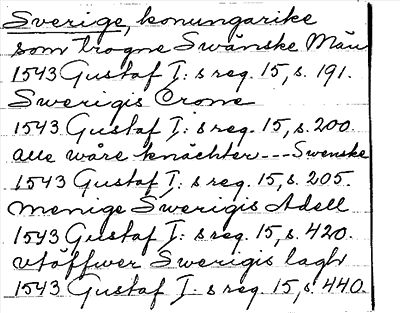 Sverige, konungarike
som trogne Swänske Män
1543 Gustaf I: s reg. 15, s. 191.
Swerigis Crone
1543 Gustaf I: s reg. 15, s. 200.
alle wåre knächter --- Swenske
1543 Gustaf I: s reg. 15, s. 205.
menige Swerigis Adell
1543 Gustaf I: s reg. 15, s. 420.
vtöffwer Swerigis lagh
1543 Gustaf I s reg. 15, s. 440.